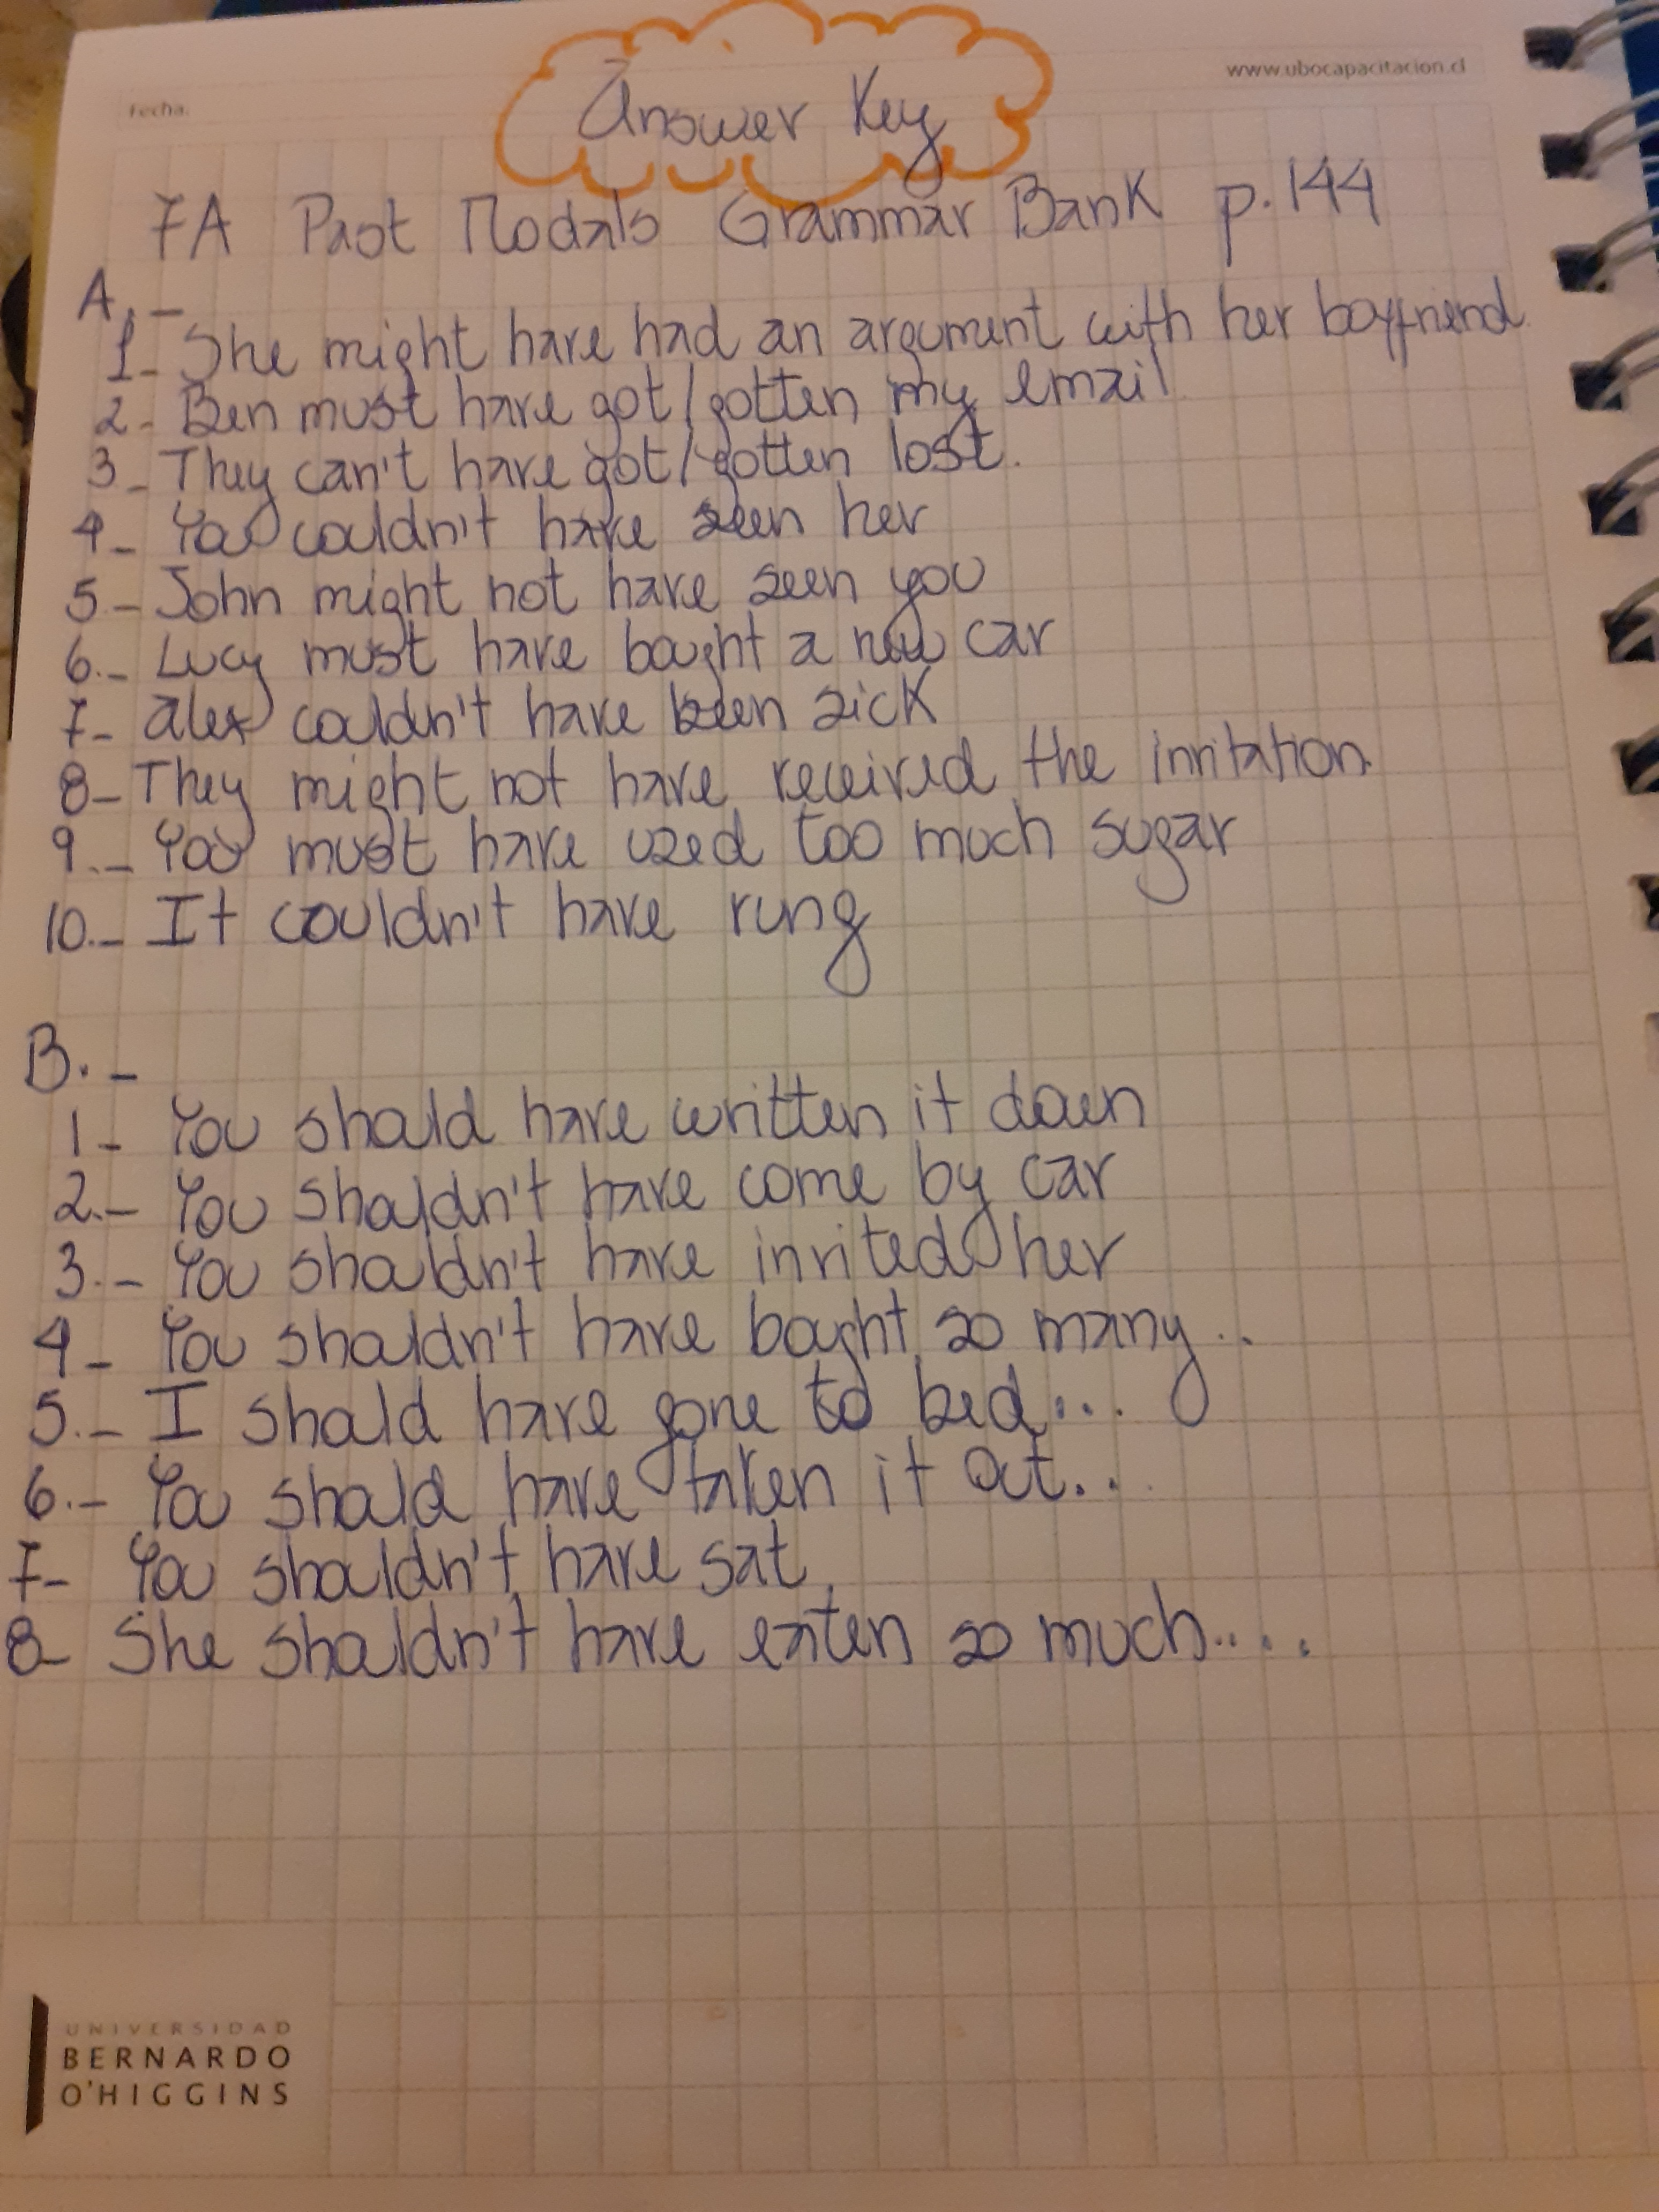 www.ubocapacitacion.cl
Fecha:
Answer Key
7A Past Modals Grammar Bank p.144
A.-
1- She might have had an argument with her boyfriend.
2- Ben must have got/gotten my email
3- They can't have got/gotten lost.
4- You couldn't have seen her
5- John might not have seen you
6.- Lucy must have bought a new car
7- Alex couldn't have been sick
8- They might not have received the invitation.
9.- You must have used too much sugar
10.- It couldn't have rung
B.-
1- You should have written it down
2.- You shouldn't have come by car
3.- You shouldn't have invited her
4- You shouldn't have bought so many..
5.- I should have gone to bed...
6.- You should have taken it out...
7- You shouldn't have sat.
8- She shouldn't have eaten so much....
UNIVERSIDAD
BERNARDO
O'HIGGINS